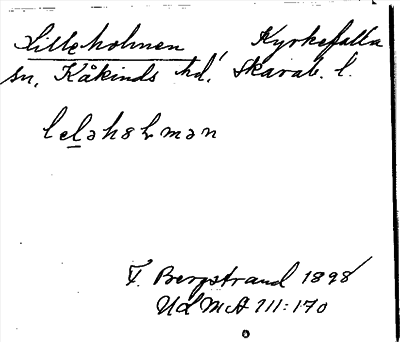 Lilleholmen, Kyrkefalla
sn, Kåkinds hd, Skarab. l.
lelahslman
T. Bergstrand 1898
UdMA III:170